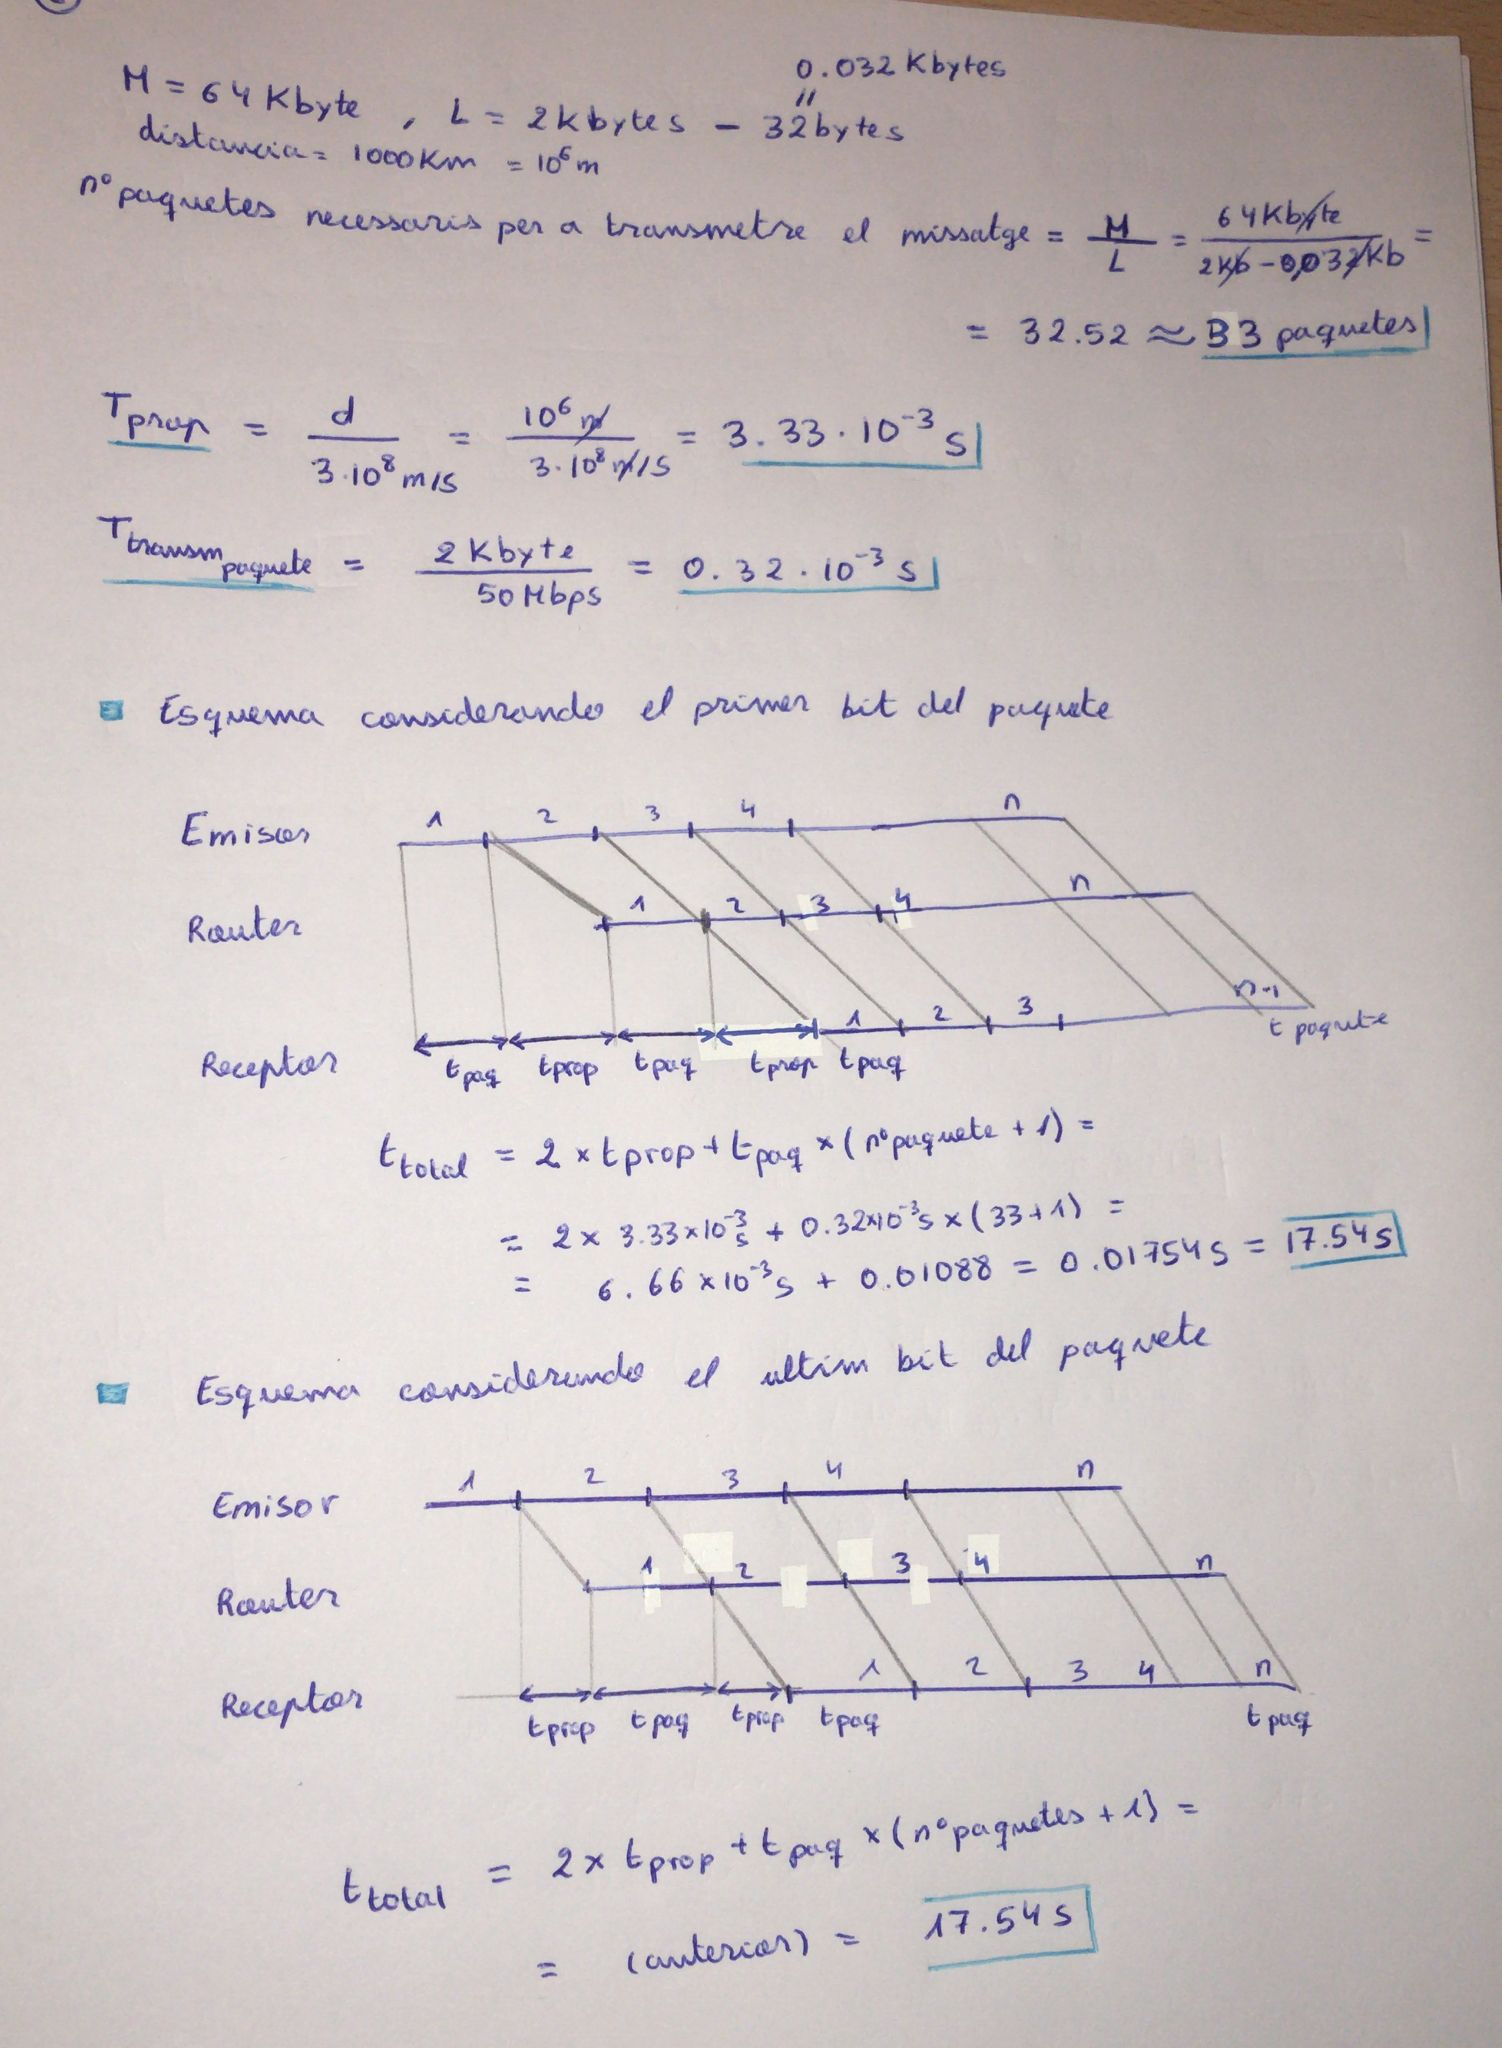 0.032 Kbytes
"
M = 64 Kbyte , L = 2Kbytes - 32bytes
distancia = 1000Km = 10⁶m
nº paquetes necessaris per a transmetre el missatge = M/L = 64Kbyte/(2Kb - 0,032Kb) =
= 32.52 ≈ 33 paquetes
Tprop = d/(3·10⁸m/s) = 10⁶m/(3·10⁸m/s) = 3.33·10⁻³ s
Ttransm paquete = 2Kbyte/50Mbps = 0.32·10⁻³ s
Esquema considerando el primer bit del paquete
Emisor 1 2 3 4 n
Router 1 2 3 4 n
Receptor 1 2 3 n-1
tpaq tprop tpaq tprop tpaq t paquete
ttotal = 2 × tprop + tpaq × (nºpaquete + 1) =
= 2 × 3.33×10⁻³s + 0.32×10⁻³s × (33+1) =
= 6.66×10⁻³s + 0.01088 = 0.01754s = 17.54s
Esquema considerando el ultim bit del paquete
Emisor 1 2 3 4 n
Router 1 2 3 4 n
Receptor 1 2 3 4 n
tprop tpaq tprop tpaq tpaq
ttotal = 2× tprop + tpaq × (nºpaquetes + 1) =
= (anterior) = 17.54s